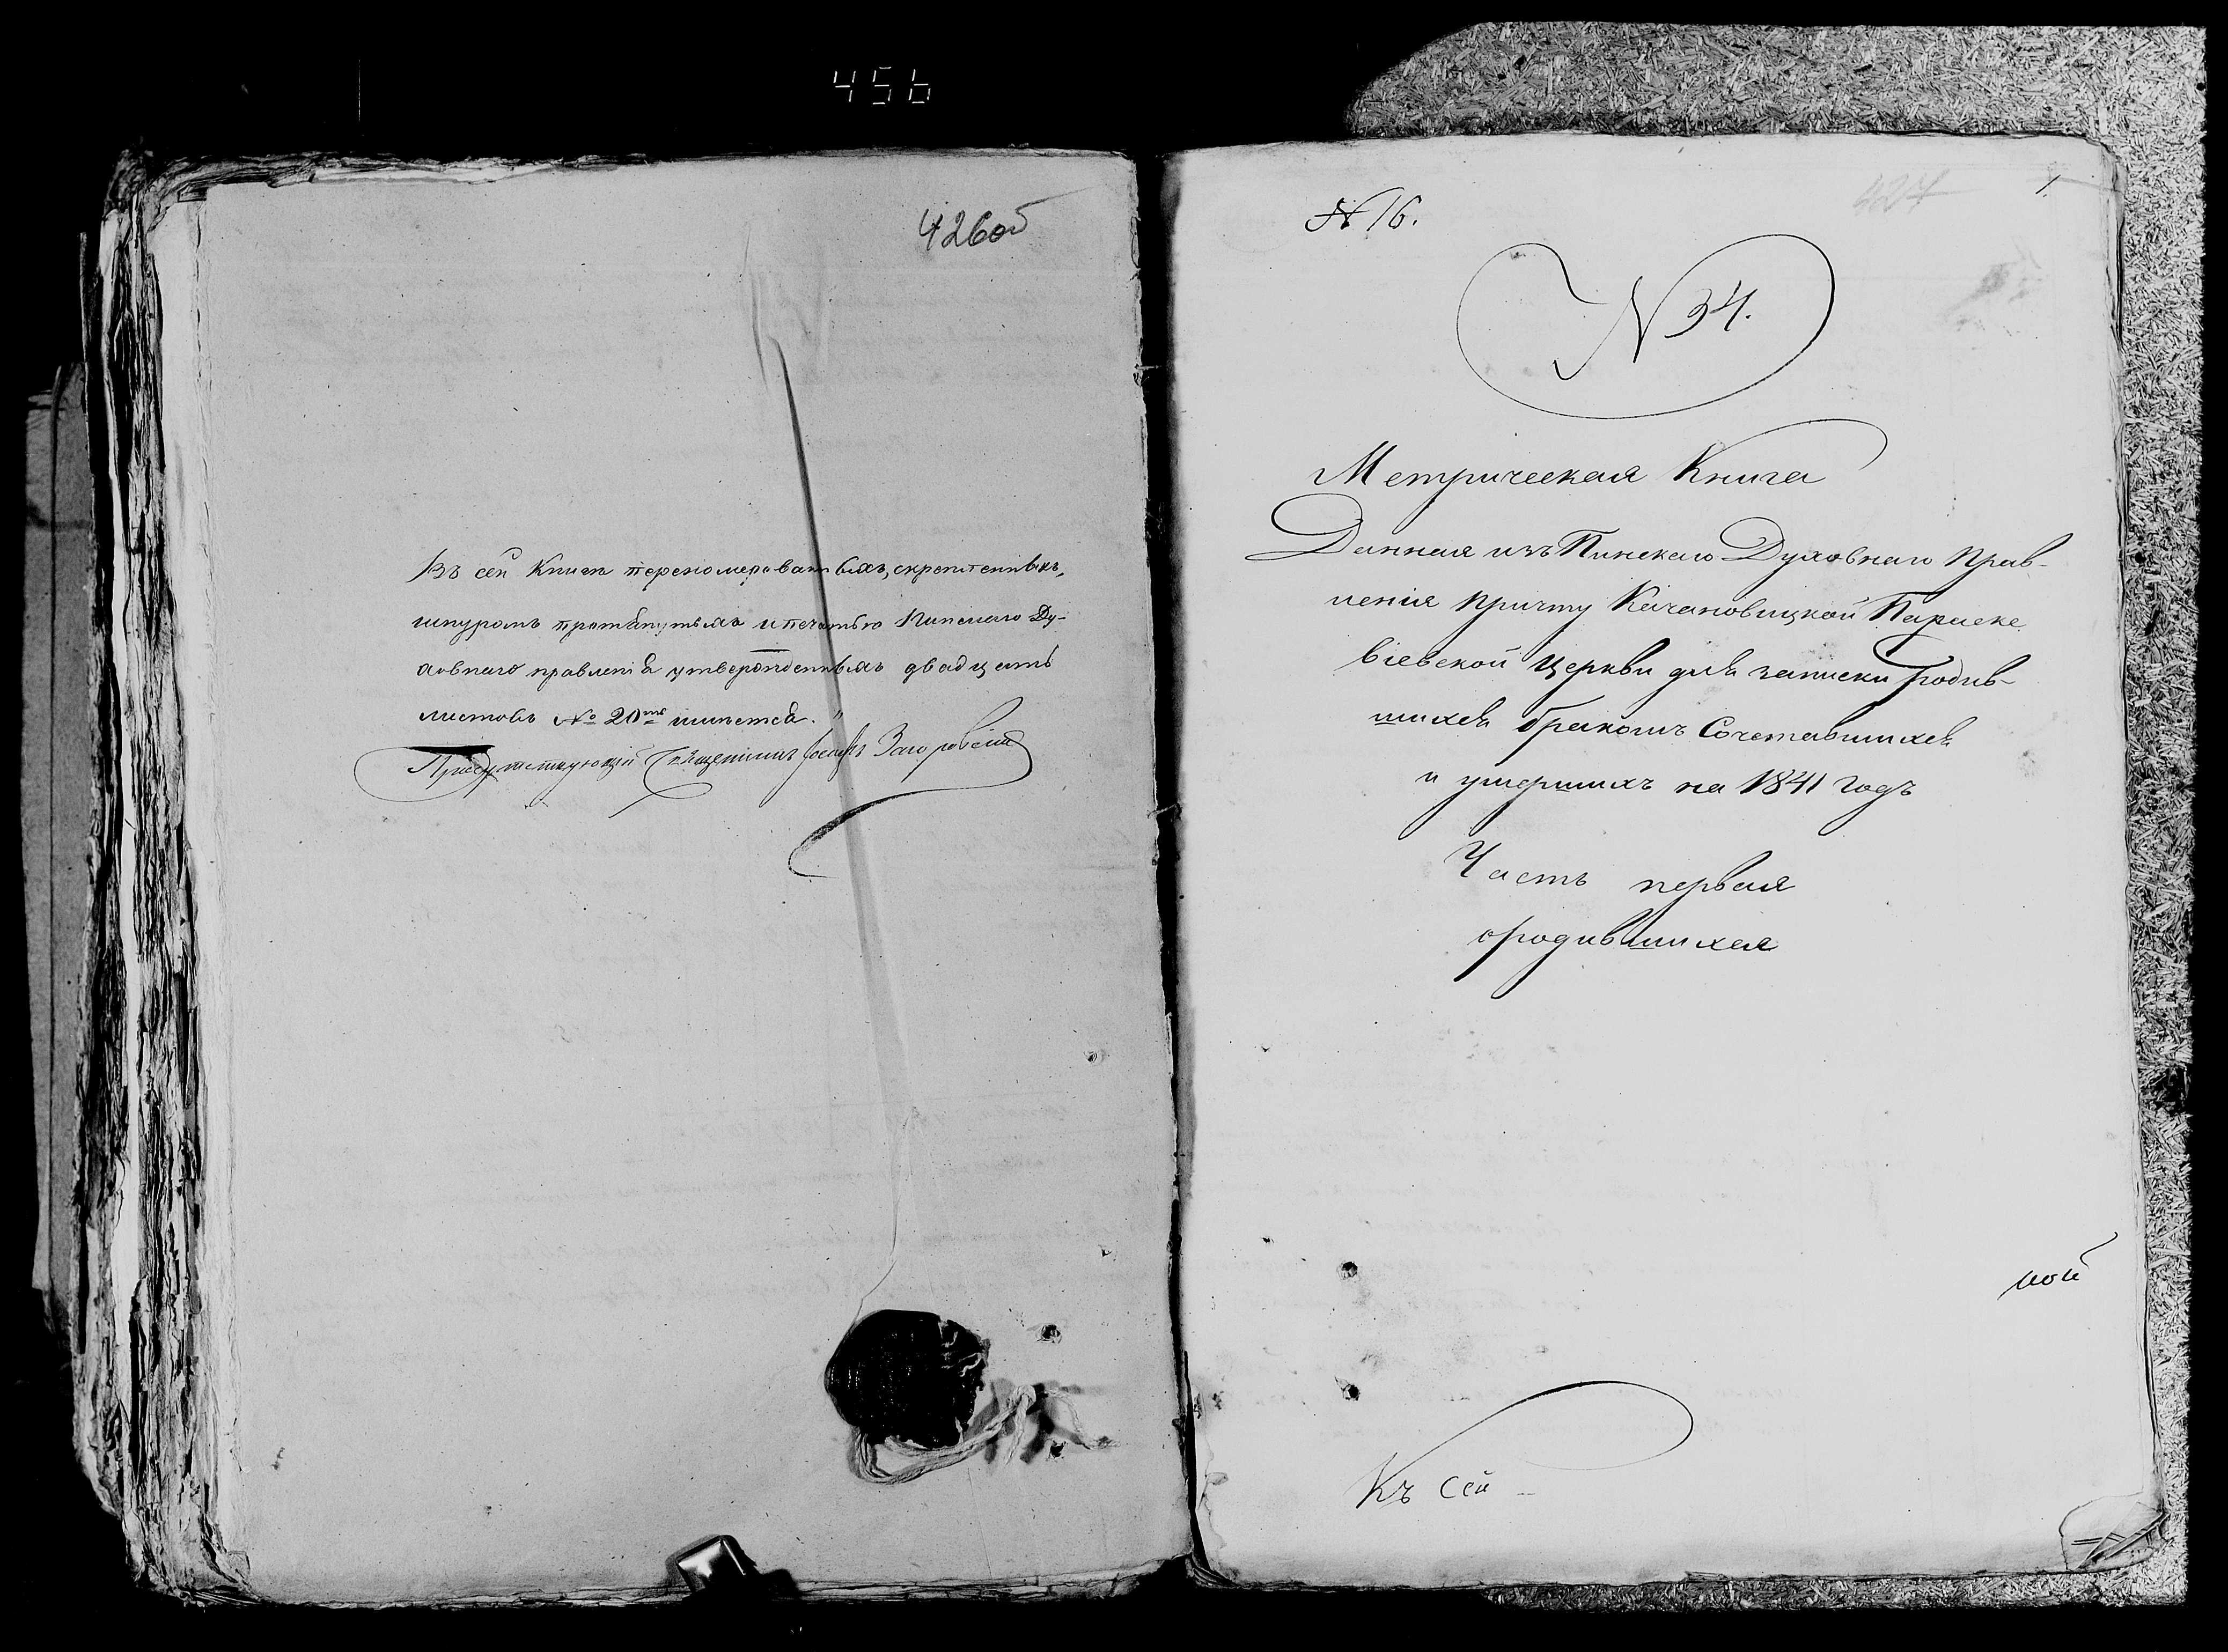 456
426об
Въ сей Книгѣ перенумерованныхъ, скрепленныхъ,
шнуромъ протянутыхъ и печатью Пинскаго Ду-
ховнаго правленія утвержденныхъ двадцать
листовъ № 20ть имѣется.
Присутствующій Священникъ Іосифъ Загоровскій
№ 16.
427
1.
№ 34.
Метрическая Книга
Данная изъ Пинскаго Духовнаго Прав-
ленія Причту Качановицкой Параске
віевской Церкви для записки родив-
шихся бракомъ Сочетавшихся
и умершихъ на 1841 годъ
Часть первая
о родившихся
Къ сей